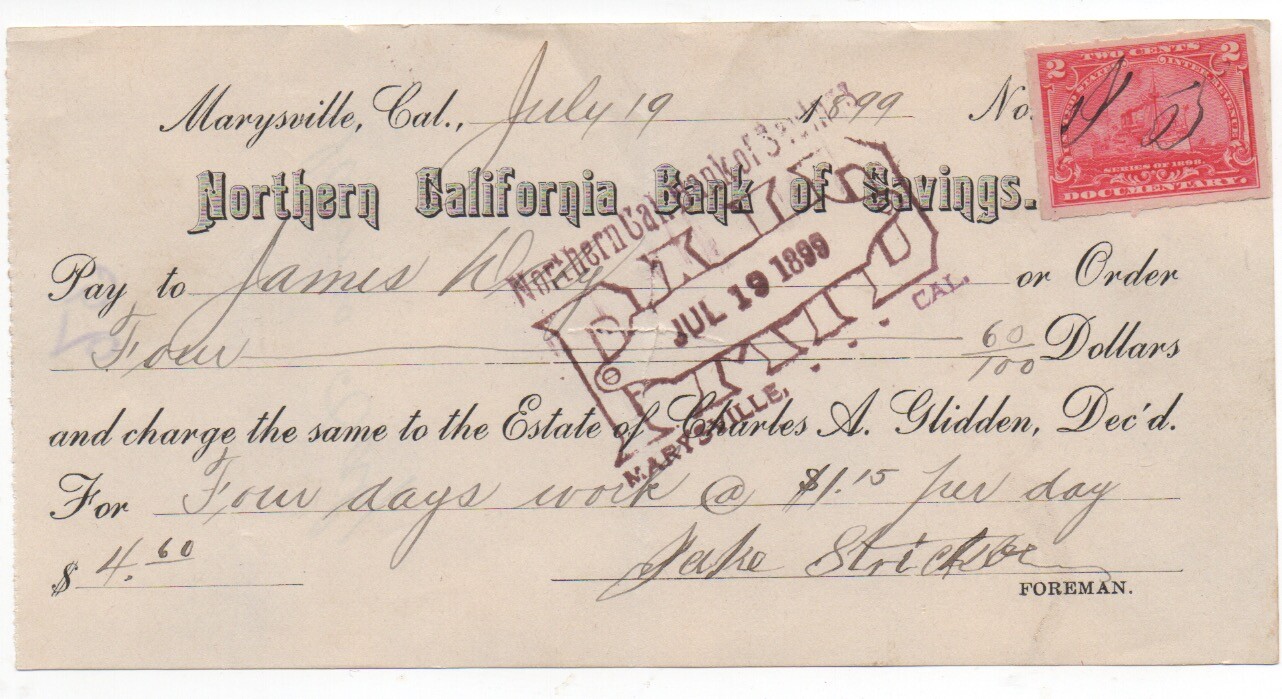 Marysville, Cal., July 19 1899 No.
Northern California Bank of Savings.
Pay to James or Order
Four 60/100 Dollars
and charge the same to the Estate of Charles A. Glidden, Dec'd.
For Four days work @ $1.15 per day
$ 4.60
Jake
FOREMAN.
2 TWO CENTS 2
UNITED STATES INTER. REVENUE
SERIES OF 1898.
DOCUMENTARY.
J S
Northern Cal. Bank of Savings
PAID
JUL 19 1899
MARYSVILLE, CAL.